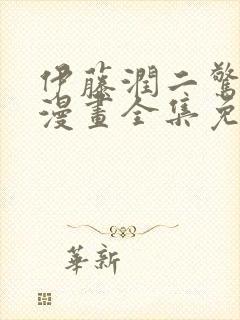 伊藤潤二驚
漫畫全集免
華新